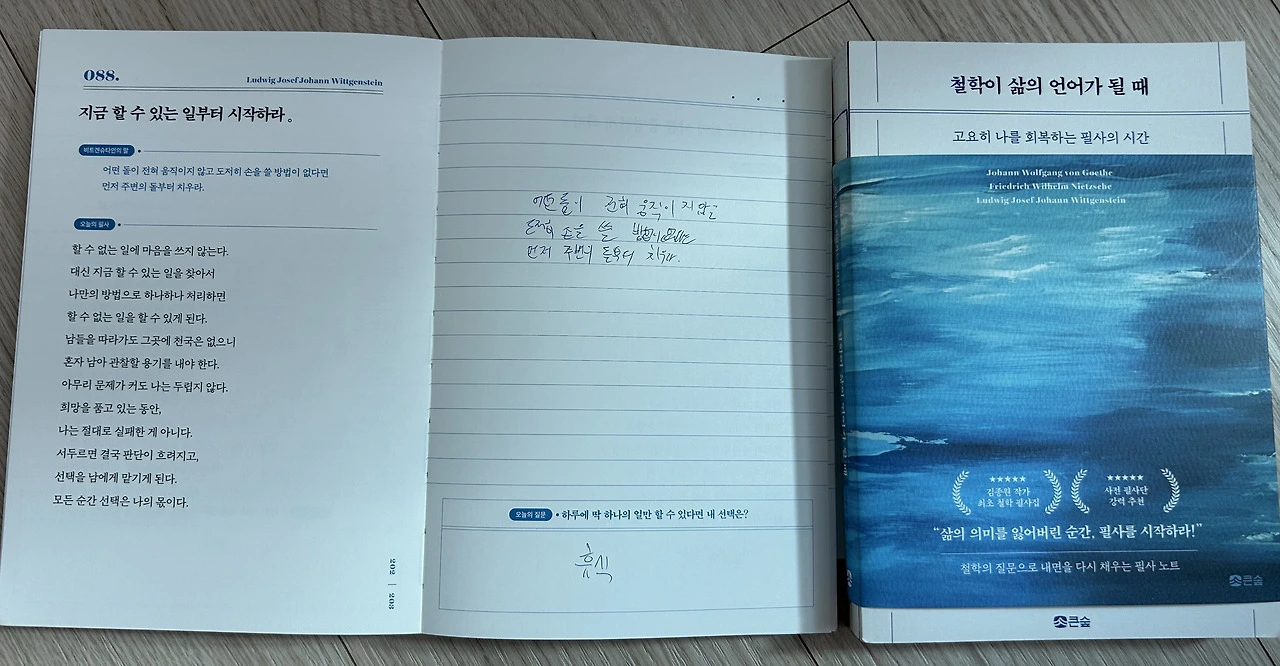 088.
Ludwig Josef Johann Wittgenstein
지금 할 수 있는 일부터 시작하라.
비트겐슈타인의 말
어떤 돌이 전혀 움직이지 않고 도저히 손을 쓸 방법이 없다면
먼저 주변의 돌부터 치우라.
오늘의 필사
할 수 없는 일에 마음을 쓰지 않는다.
대신 지금 할 수 있는 일을 찾아서
나만의 방법으로 하나하나 처리하면
할 수 없는 일을 할 수 있게 된다.
남들을 따라가도 그곳에 천국은 없으니
혼자 남아 관찰할 용기를 내야 한다.
아무리 문제가 커도 나는 두렵지 않다.
희망을 품고 있는 동안,
나는 절대로 실패한 게 아니다.
서두르면 결국 판단이 흐려지고,
선택을 남에게 맡기게 된다.
모든 순간 선택은 나의 몫이다.
202 | 203
어떤 돌이 전혀 움직이지 않고
도저히 손을 쓸 방법이 없다면
먼저 주변의 돌부터 치우라.
오늘의 질문 • 하루에 딱 하나의 일만 할 수 있다면 내 선택은?
휴식
철학이 삶의 언어가 될 때
고요히 나를 회복하는 필사의 시간
Johann Wolfgang von Goethe
Friedrich Wilhelm Nietzsche
Ludwig Josef Johann Wittgenstein
김종원 작가
최초 철학 필사집
사전 필사단
강력 추천
“삶의 의미를 잃어버린 순간, 필사를 시작하라!”
철학의 질문으로 내면을 다시 채우는 필사 노트
큰숲
큰숲